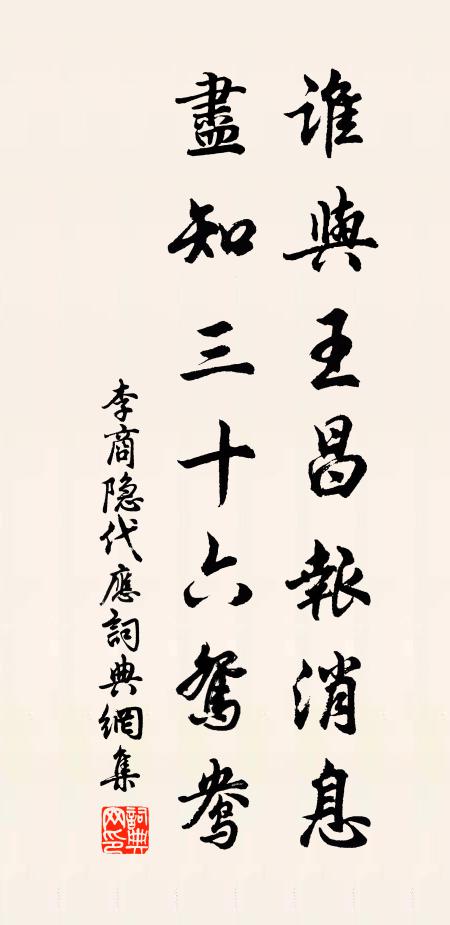 誰與王昌報消息
盡知三十六鴛鴦
李商隐代應詞典網集
詞典网印